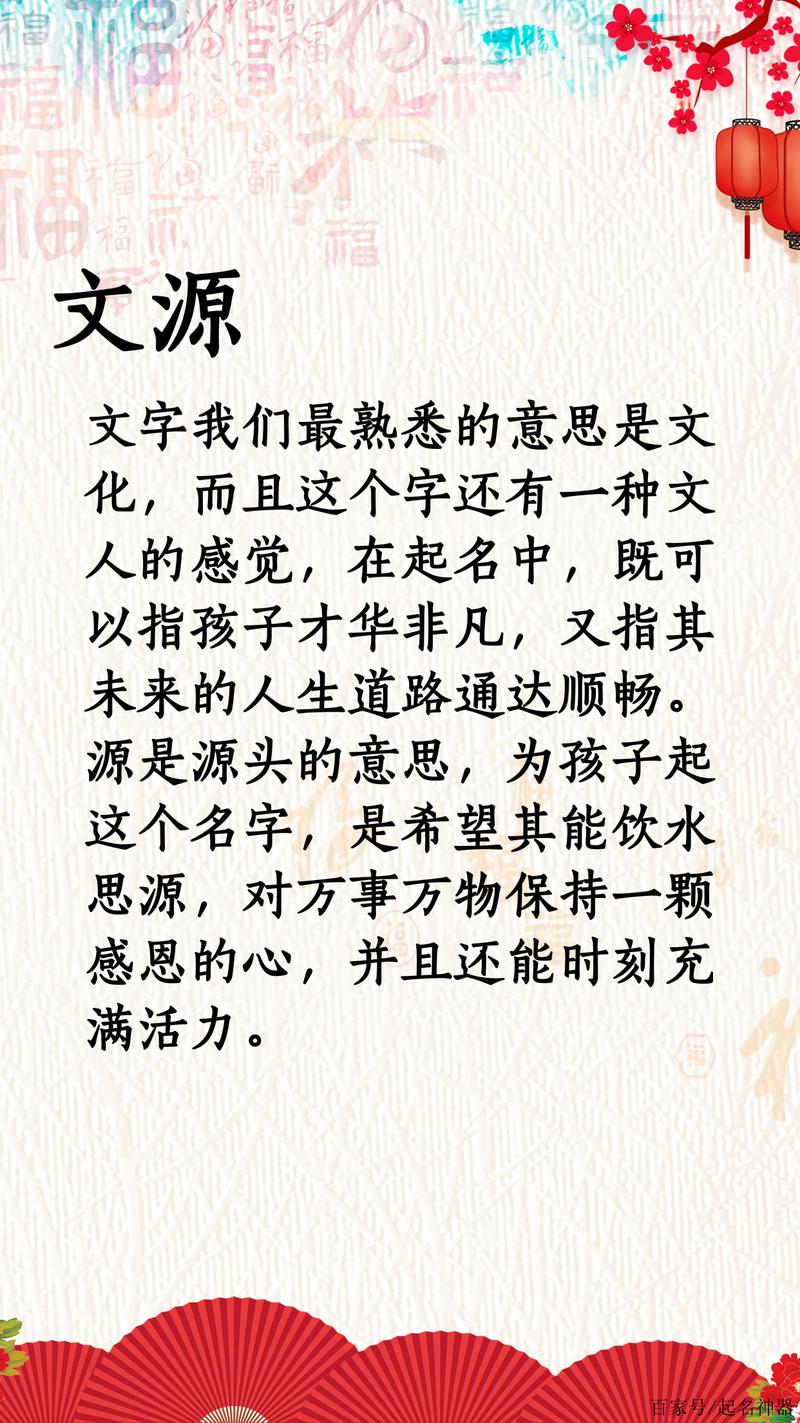 文源
文字我们最熟悉的意思是文
化，而且这个字还有一种文
人的感觉，在起名中，既可
以指孩子才华非凡，又指其
未来的人生道路通达顺畅。
源是源头的意思，为孩子起
这个名字，是希望其能饮水
思源，对万事万物保持一颗
感恩的心，并且还能时刻充
满活力。
百家号/起名神器